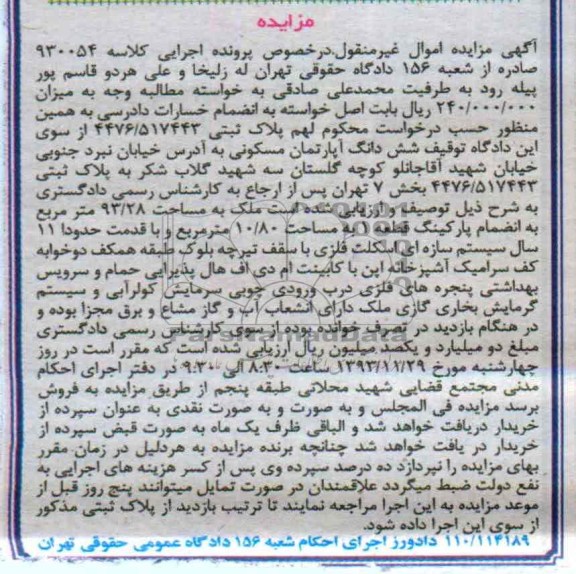 مزایده
آگهی مزایده اموال غیرمنقول.درخصوص پرونده اجرایی کلاسه ۹۳۰۰۵۴
صادره از شعبه ۱۵۶ دادگاه حقوقی تهران له زلیخا و علی هردو قاسم پور
پیله رود به طرفیت محمدعلی صادقی به خواسته مطالبه وجه به میزان
۲۴۰/۰۰۰/۰۰۰ ریال بابت اصل خواسته به انضمام خسارات دادرسی به همین
منظور حسب درخواست محکوم لهم پلاک ثبتی ۴۴۷۶/۵۱۷۴۴۳ از سوی
این دادگاه توقیف شش دانگ آپارتمان مسکونی به آدرس خیابان نبرد جنوبی
خیابان شهید آقاجانلو کوچه گلستان سه شهید گلاب شکر به پلاک ثبتی
۴۴۷۶/۵۱۷۴۴۳ بخش ۷ تهران پس از ارجاع به کارشناس رسمی دادگستری
به شرح ذیل توصیف و ارزیابی شده است ملک به مساحت ۹۳/۲۸ متر مربع
به انضمام پارکینگ قطعه به مساحت ۱۰/۸۰ مترمربع و با قدمت حدودا ۱۱
سال سیستم سازه ای اسکلت فلزی با سقف تیرچه بلوک طبقه همکف دوخوابه
کف سرامیک آشپزخانه اپن با کابینت ام دی اف هال پذیرایی حمام و سرویس
بهداشتی پنجره های فلزی درب ورودی چوبی سرمایش کولرآبی و سیستم
گرمایش بخاری گازی ملک دارای انشعاب آب و گاز مشاع و برق مجزا بوده و
در هنگام بازدید در تصرف خوانده بوده از سوی کارشناس رسمی دادگستری
مبلغ دو میلیارد و یکصد میلیون ریال ارزیابی شده است که مقرر است در روز
چهارشنبه مورخ ۱۳۹۳/۱۱/۲۹ ساعت ۸:۳۰ الی ۹:۳۰ در دفتر اجرای احکام
مدنی مجتمع قضایی شهید محلاتی طبقه پنجم از طریق مزایده به فروش
برسد مزایده فی المجلس و به صورت و به صورت نقدی به عنوان سپرده از
خریدار دریافت خواهد شد و الباقی ظرف یک ماه به صورت قبض سپرده از
خریدار در یافت خواهد شد چنانچه برنده مزایده به هردلیل در زمان مقرر
بهای مزایده را نپردازد ده درصد سپرده وی پس از کسر هزینه های اجرایی به
نفع دولت ضبط میگردد علاقمندان در صورت تمایل میتوانند پنج روز قبل از
موعد مزایده به این اجرا مراجعه نمایند تا ترتیب بازدید از پلاک ثبتی مذکور
از سوی این اجرا داده شود.
۱۱۰/۱۱۴۱۸۹ دادورز اجرای احکام شعبه ۱۵۶ دادگاه عمومی حقوقی تهران